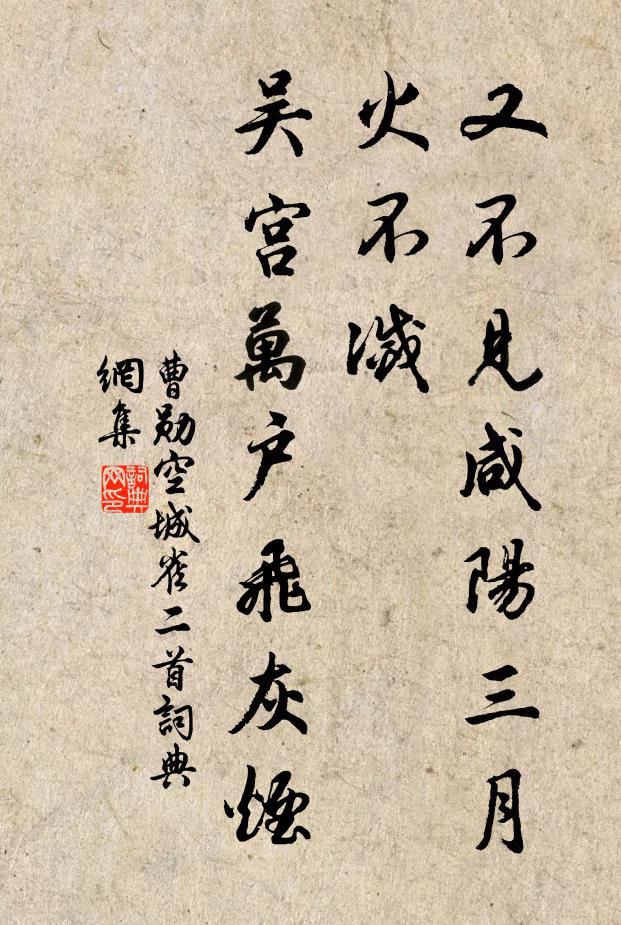 又不見咸陽三月
火不滅
吳宮萬户飛灰煙
曹勛空城雀二首詞典
網集
詞典网印